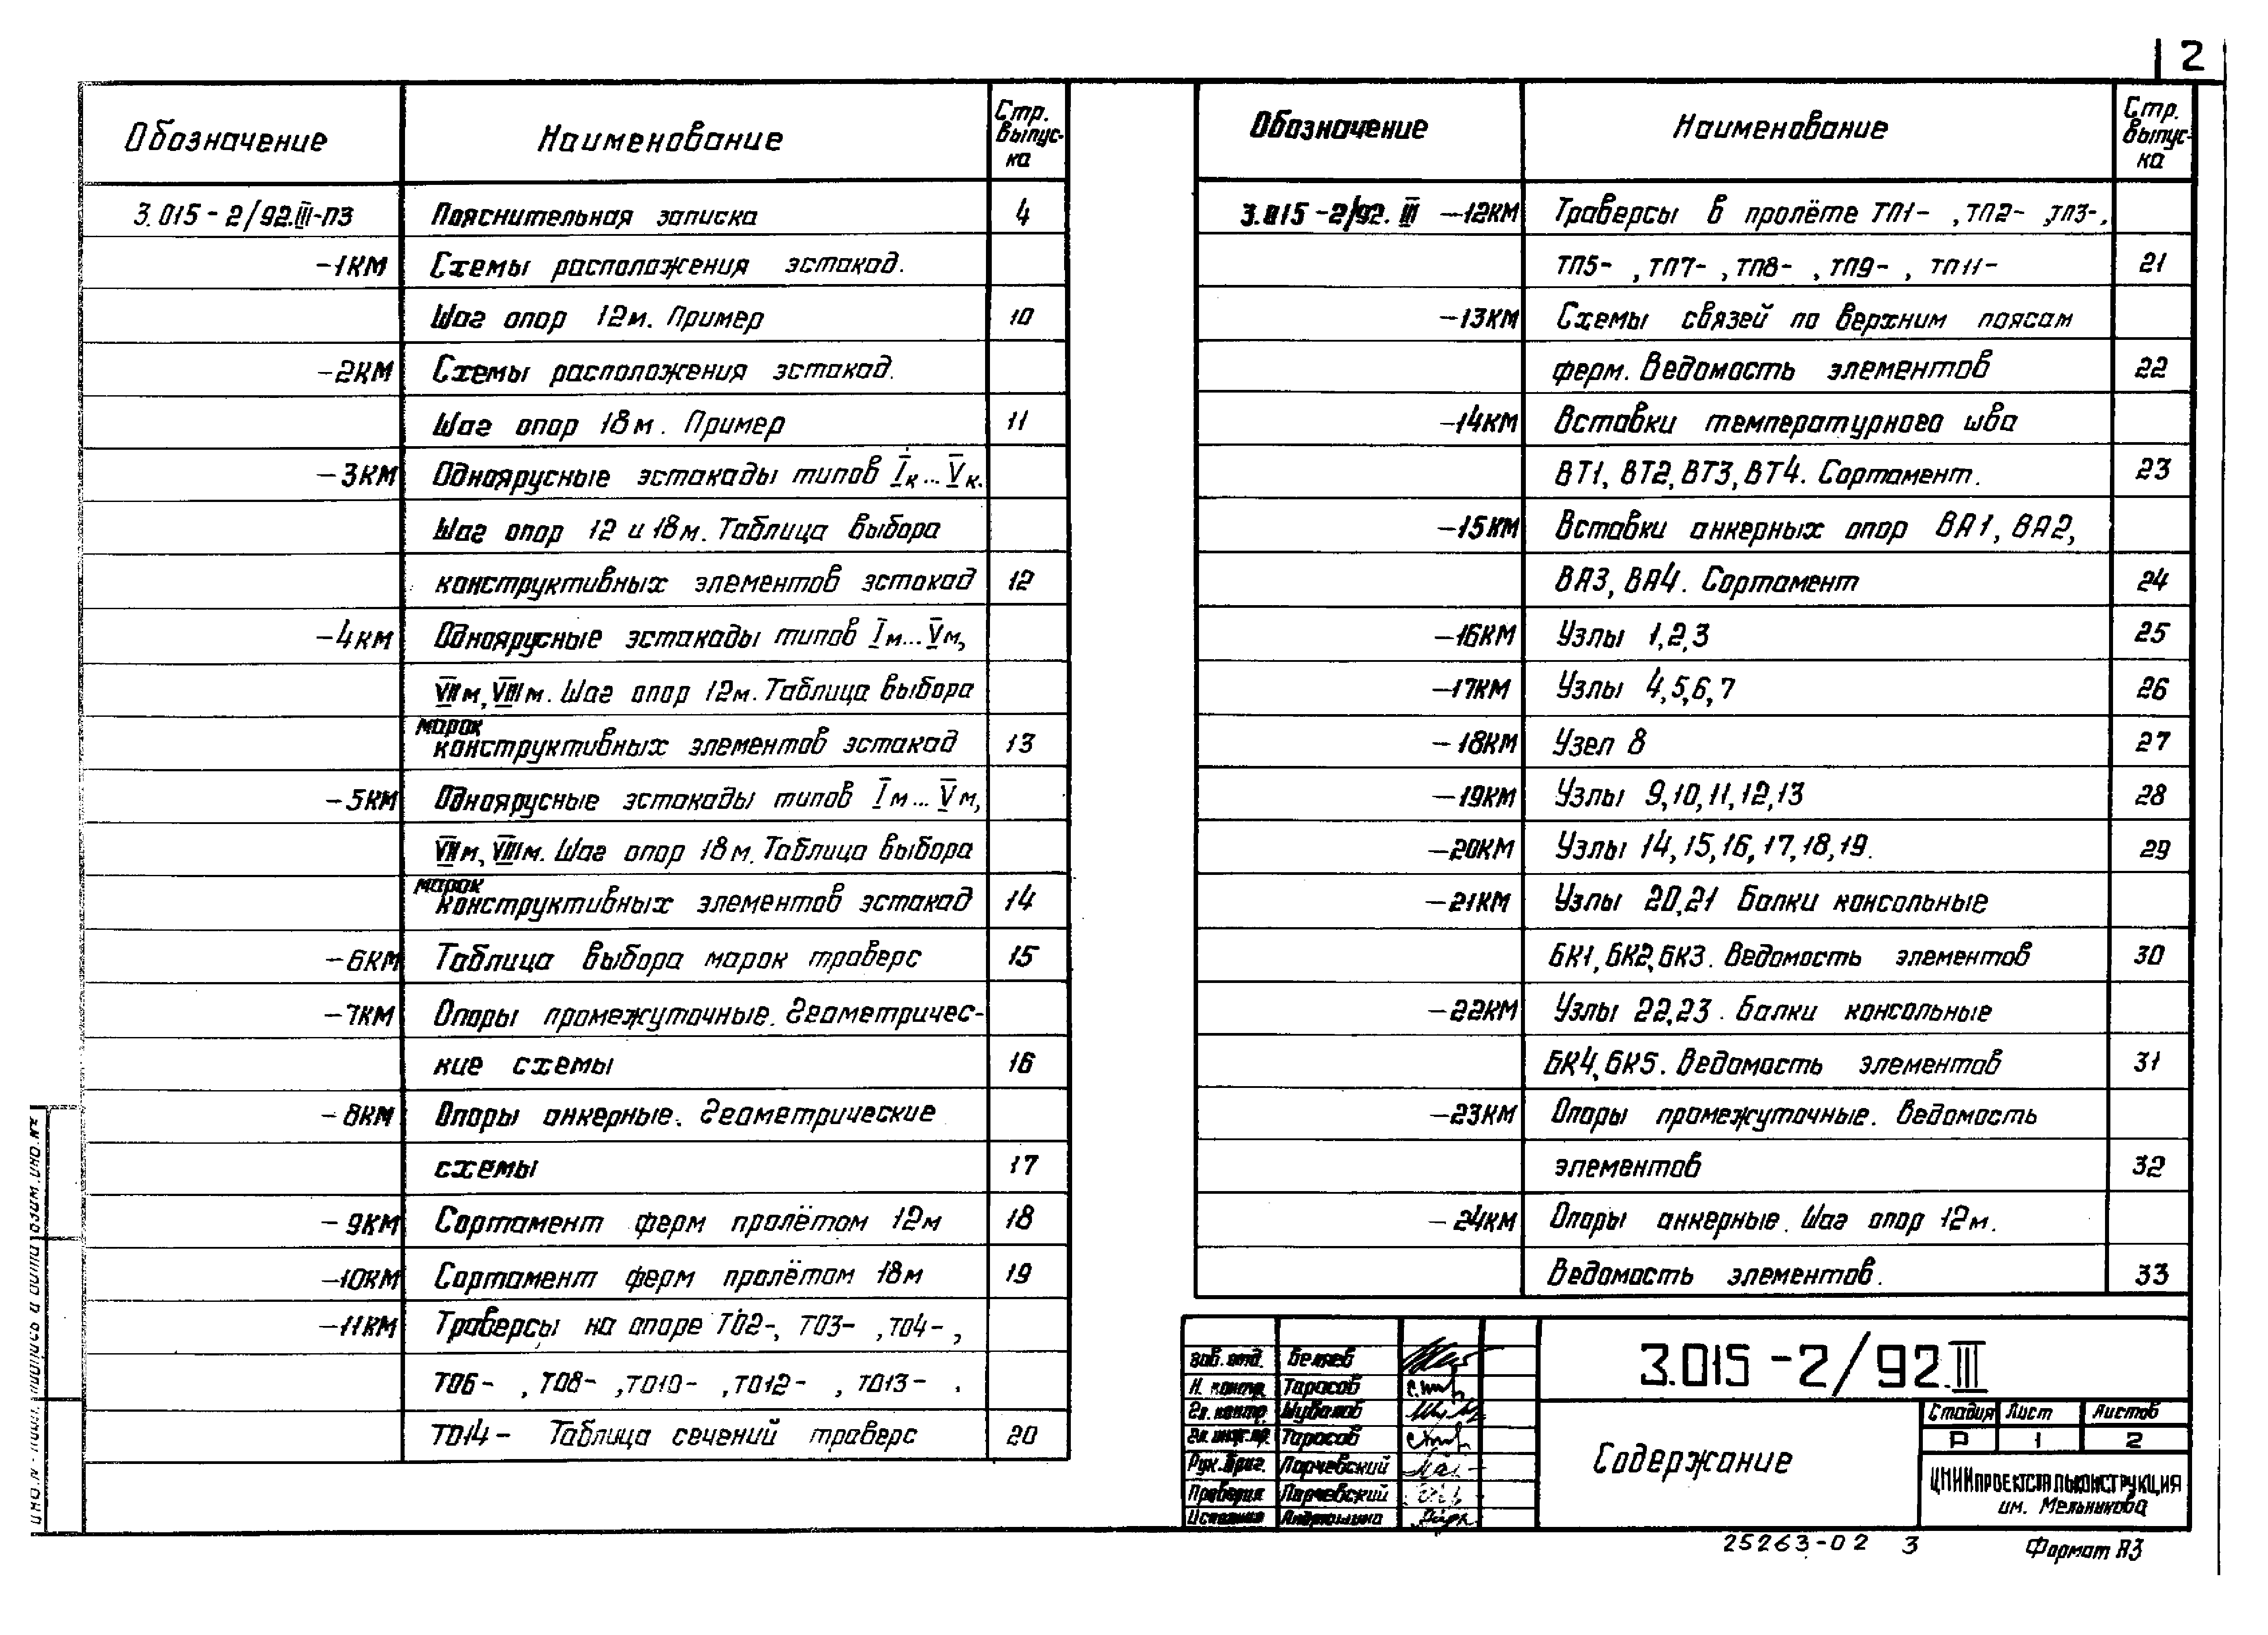 2
Обозначение Наименование Стр. выпус-
ка
3.015-2/92.III-ПЗ Пояснительная записка 4
-1КМ Схемы расположения эстакад.
Шаг опор 12м. Пример 10
-2КМ Схемы расположения эстакад.
Шаг опор 18м. Пример 11
-3КМ Одноярусные эстакады типов Iк...Vк.
Шаг опор 12 и 18м. Таблица выбора
конструктивных элементов эстакад 12
-4КМ Одноярусные эстакады типов Iм...Vм,
VIIм, VIIIм. Шаг опор 12м. Таблица выбора
марок
конструктивных элементов эстакад 13
-5КМ Одноярусные эстакады типов Iм...Vм,
VIIм, VIIIм. Шаг опор 18м. Таблица выбора
марок
конструктивных элементов эстакад 14
-6КМ Таблица выбора марок траверс 15
-7КМ Опоры промежуточные. Геометричес-
кие схемы 16
-8КМ Опоры анкерные. Геометрические
схемы 17
-9КМ Сортамент ферм пролётом 12м 18
-10КМ Сортамент ферм пролётом 18м 19
-11КМ Траверсы на опоре ТО2-, ТО3- , ТО4- ,
ТО6- , ТО8- , ТО10- , ТО12- , ТО13- .
ТО14- Таблица сечений траверс 20
Обозначение Наименование Стр.
выпус-
ка
3.015-2/92. III -12КМ Траверсы в пролёте ТП1- , ТП2- , ТП3-,
ТП5- , ТП7- , ТП8- , ТП9- , ТП11- 21
-13КМ Схемы связей по верхним поясам
ферм. Ведомость элементов 22
-14КМ Вставки температурного шва
ВТ1, ВТ2, ВТ3, ВТ4. Сортамент. 23
-15КМ Вставки анкерных опор ВА1, ВА2,
ВА3, ВА4. Сортамент 24
-16КМ Узлы 1,2,3 25
-17КМ Узлы 4,5,6,7 26
-18КМ Узел 8 27
-19КМ Узлы 9,10,11,12,13 28
-20КМ Узлы 14,15,16,17,18,19. 29
-21КМ Узлы 20,21 Балки консольные
БК1, БК2, БК3. Ведомость элементов 30
-22КМ Узлы 22,23. Балки консольные
БК4, БК5. Ведомость элементов 31
-23КМ Опоры промежуточные. Ведомость
элементов 32
-24КМ Опоры анкерные. Шаг опор 12м.
Ведомость элементов. 33
Зав. отд. Беляев
Н. контр. Тарасов
Гл. констр. Шувалов
Гл. инж. пр. Тарасов
Рук. бриг. Парчевский
Проверил Парчевский
Исполнил Андрюшина
3.015-2/92.III
Содержание
Стадия Лист Листов
Р 1 2
ЦНИИПРОЕКТСТАЛЬКОНСТРУКЦИЯ
им. Мельникова
25263-02 3
Формат А3
Инв.№ подл. Подпись и дата Взам.инв.№